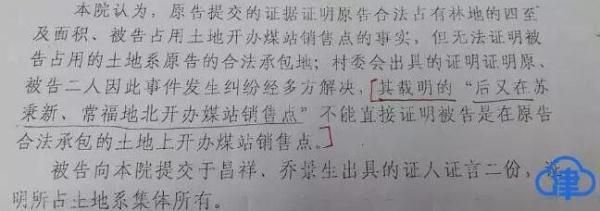 本院认为，原告提交的证据证明原告合法占有林地的四至
及面积、被告占用土地开办煤站销售点的事实，但无法证明被
告占用的土地系原告的合法承包地；村委会出具的证明证明原、
被告二人因此事件发生纠纷经多方解决，其载明的“后又在苏
秉新、常福地北开办煤站销售点”不能直接证明被告是在原告
合法承包的土地上开办煤站销售点。
被告向本院提交于昌祥、乔景生出具的证人证言二份，证
明所占土地系集体所有。
津